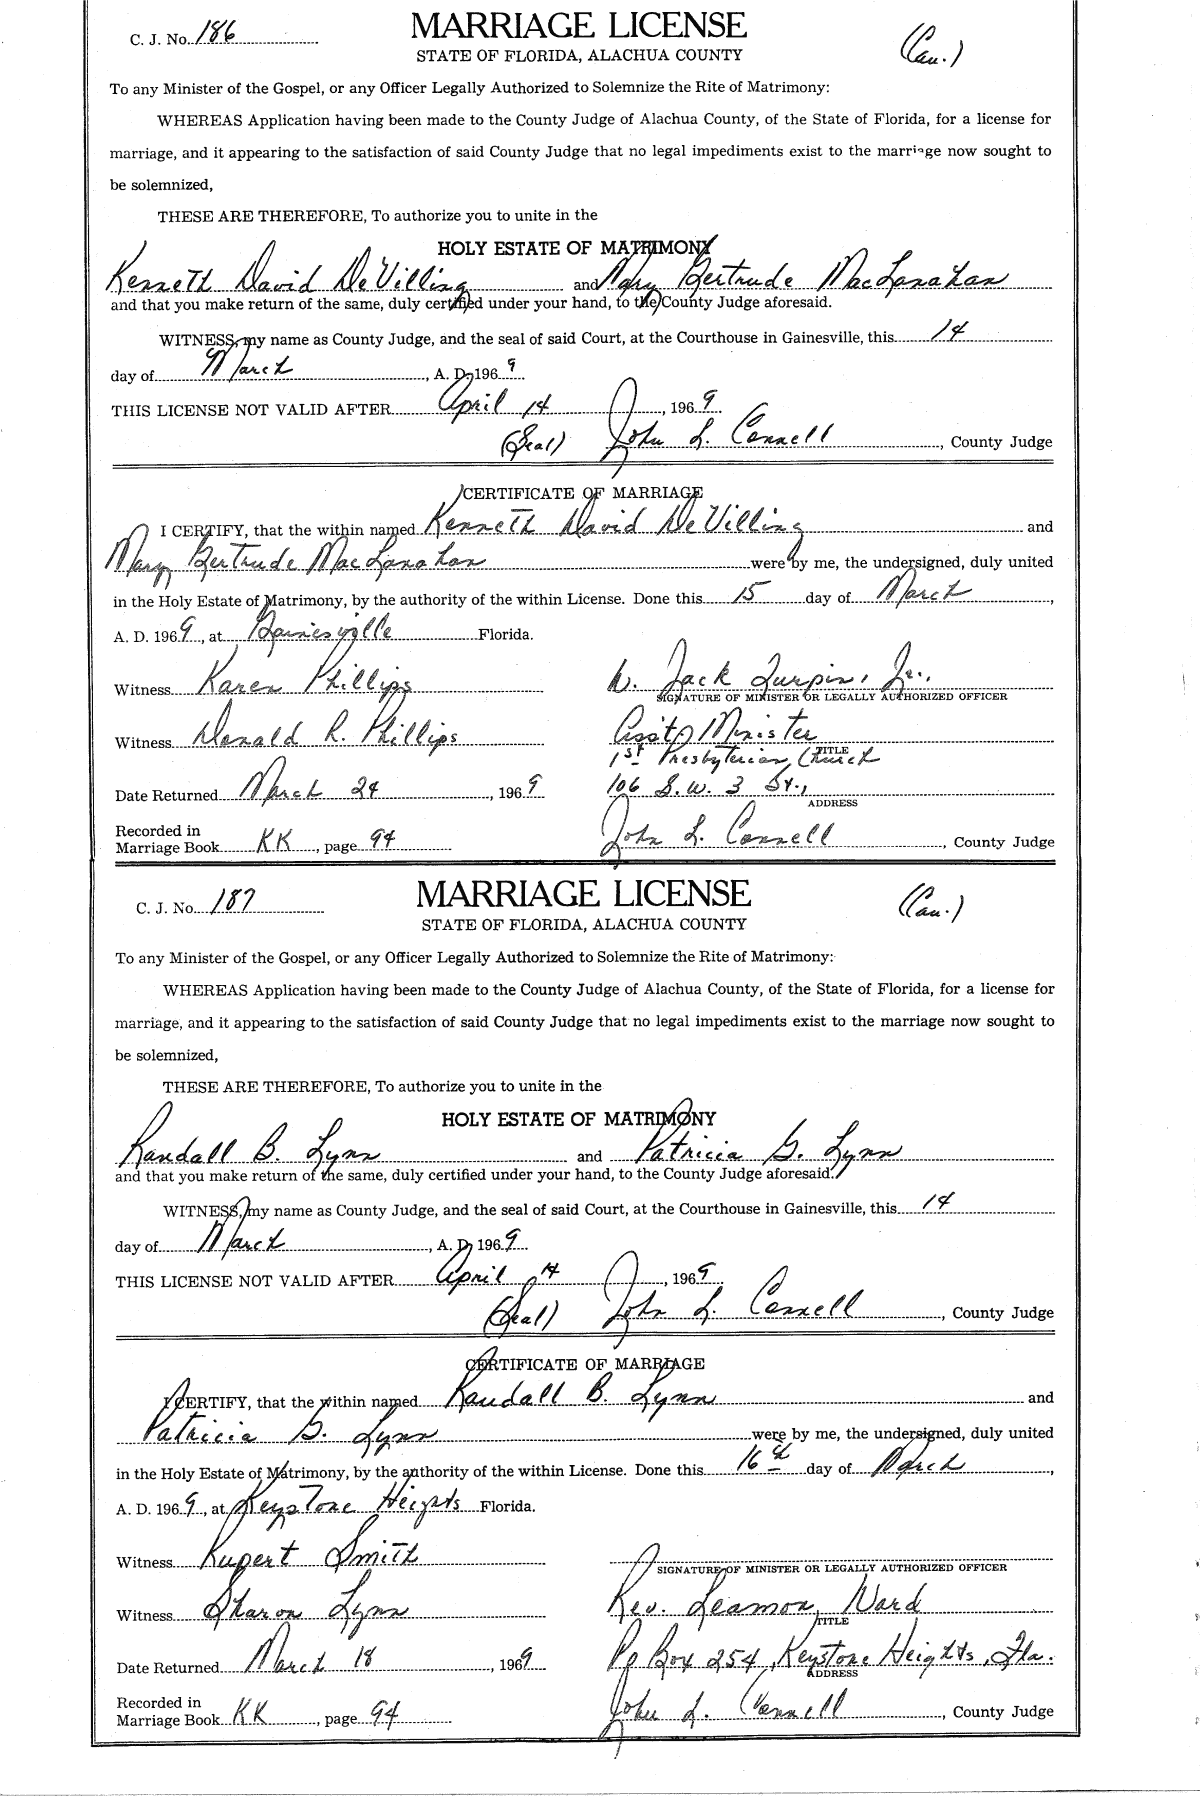 C. J. No. 186
MARRIAGE LICENSE
(Cau.)
STATE OF FLORIDA, ALACHUA COUNTY
To any Minister of the Gospel, or any Officer Legally Authorized to Solemnize the Rite of Matrimony:
WHEREAS Application having been made to the County Judge of Alachua County, of the State of Florida, for a license for
marriage, and it appearing to the satisfaction of said County Judge that no legal impediments exist to the marriage now sought to
be solemnized,
THESE ARE THEREFORE, To authorize you to unite in the
HOLY ESTATE OF MATRIMONY
Kenneth David DeVilling and Mary Gertrude MacLanahan
and that you make return of the same, duly certified under your hand, to the County Judge aforesaid.
WITNESS, my name as County Judge, and the seal of said Court, at the Courthouse in Gainesville, this 14
day of March, A. D. 1969
THIS LICENSE NOT VALID AFTER April 14, 1969
(Seal) John L. Connell, County Judge
CERTIFICATE OF MARRIAGE
I CERTIFY, that the within named Kenneth David DeVilling and
Mary Gertrude MacLanahan were by me, the undersigned, duly united
in the Holy Estate of Matrimony, by the authority of the within License. Done this 15 day of March,
A. D. 1969, at Gainesville Florida.
Witness Karen Phillips
W. Jack Turpin, Jr.,
SIGNATURE OF MINISTER OR LEGALLY AUTHORIZED OFFICER
Witness Donald R. Phillips
Ass't Minister
TITLE
1st Presbyterian Church
Date Returned March 24, 1969
106 S.W. 3 St.,
ADDRESS
Recorded in
Marriage Book KK, page 94
John L. Connell, County Judge
C. J. No. 187
MARRIAGE LICENSE
(Cau.)
STATE OF FLORIDA, ALACHUA COUNTY
To any Minister of the Gospel, or any Officer Legally Authorized to Solemnize the Rite of Matrimony:
WHEREAS Application having been made to the County Judge of Alachua County, of the State of Florida, for a license for
marriage, and it appearing to the satisfaction of said County Judge that no legal impediments exist to the marriage now sought to
be solemnized,
THESE ARE THEREFORE, To authorize you to unite in the
HOLY ESTATE OF MATRIMONY
Randall B. Lynn and Patricia G. Lynn
and that you make return of the same, duly certified under your hand, to the County Judge aforesaid.
WITNESS, my name as County Judge, and the seal of said Court, at the Courthouse in Gainesville, this 14
day of March, A. D. 1969
THIS LICENSE NOT VALID AFTER April 14, 1969
(Seal) John L. Connell, County Judge
CERTIFICATE OF MARRIAGE
I CERTIFY, that the within named Randall B. Lynn and
Patricia G. Lynn were by me, the undersigned, duly united
in the Holy Estate of Matrimony, by the authority of the within License. Done this 16th day of March,
A. D. 1969, at Keystone Heights Florida.
Witness Rupert Smith
SIGNATURE OF MINISTER OR LEGALLY AUTHORIZED OFFICER
Witness Sharon Lynn
Rev. Leamon Ward
TITLE
Date Returned March 18, 1969
Po Box 254, Keystone Heights, Fla.
ADDRESS
Recorded in
Marriage Book KK, page 94
John L. Connell, County Judge